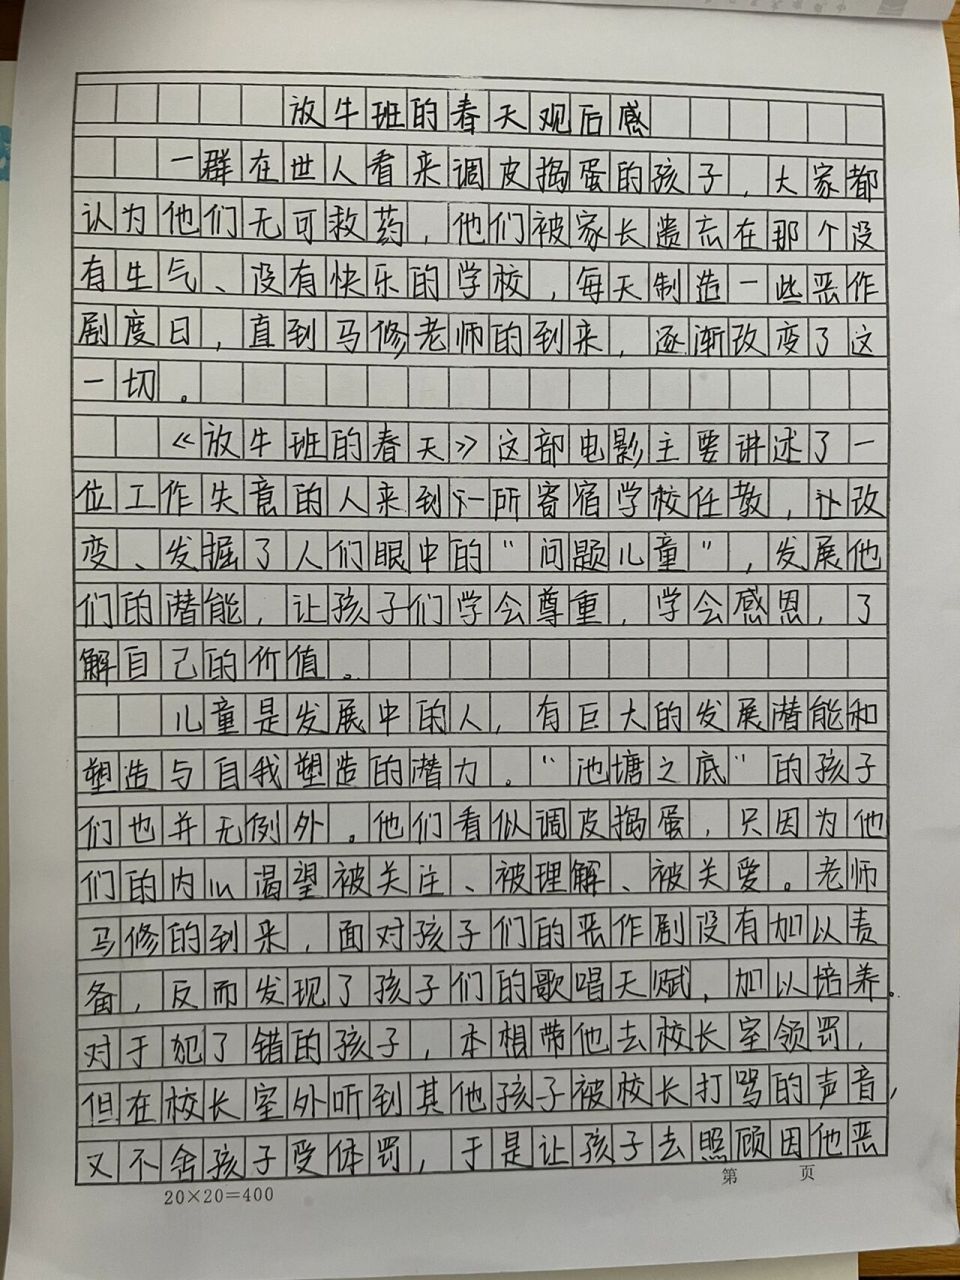 放牛班的春天观后感
一群在世人看来调皮捣蛋的孩子，大家都
认为他们无可救药，他们被家长遗忘在那个没
有生气、没有快乐的学校，每天制造一些恶作
剧度日，直到马修老师的到来，逐渐改变了这
一切。
《放牛班的春天》这部电影主要讲述了一
位工作失意的人来到一所寄宿学校任教，让改
变、发掘了人们眼中的“问题儿童”，发展他
们的潜能，让孩子们学会尊重，学会感恩，了
解自己的价值。
儿童是发展中的人，有巨大的发展潜能和
塑造与自我塑造的潜力。“池塘之底”的孩子
们也并无例外。他们看似调皮捣蛋，只因为他
们的内心渴望被关注、被理解、被关爱。老师
马修的到来，面对孩子们的恶作剧没有加以责
备，反而发现了孩子们的歌唱天赋，加以培养。
对于犯了错的孩子，本想带他去校长室领罚，
但在校长室外听到其他孩子被校长打骂的声音，
又不舍孩子受体罚，于是让孩子去照顾因他恶
20×20=400
第 页